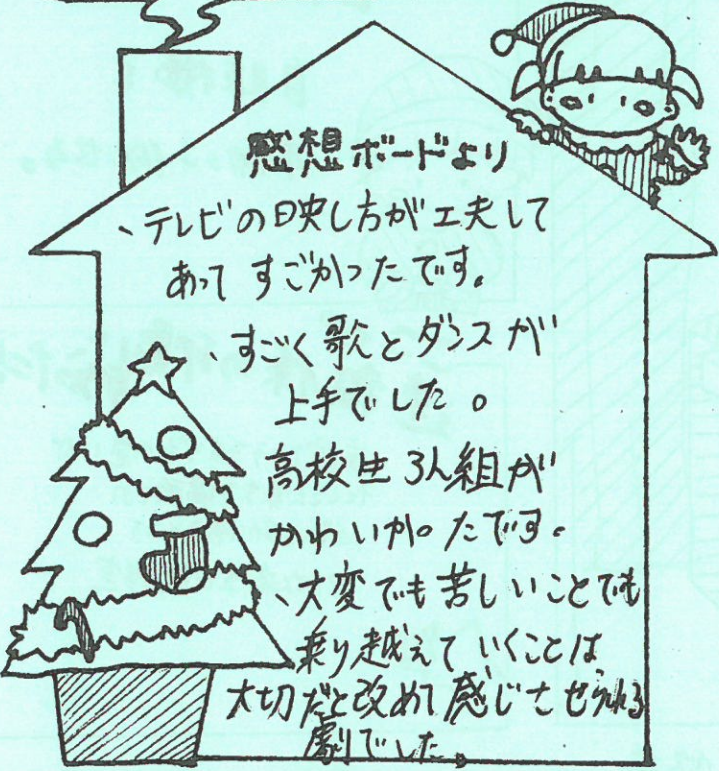 感想ボードより
、テレビの映し方が工夫して
あって すごかったです。
、すごく歌とダンスが
上手でした。
高校生 3人組が
かわいかったです。
、大変でも苦しいことでも
乗り越えていくことは
大切だと改めて感じさせられる
劇でした。